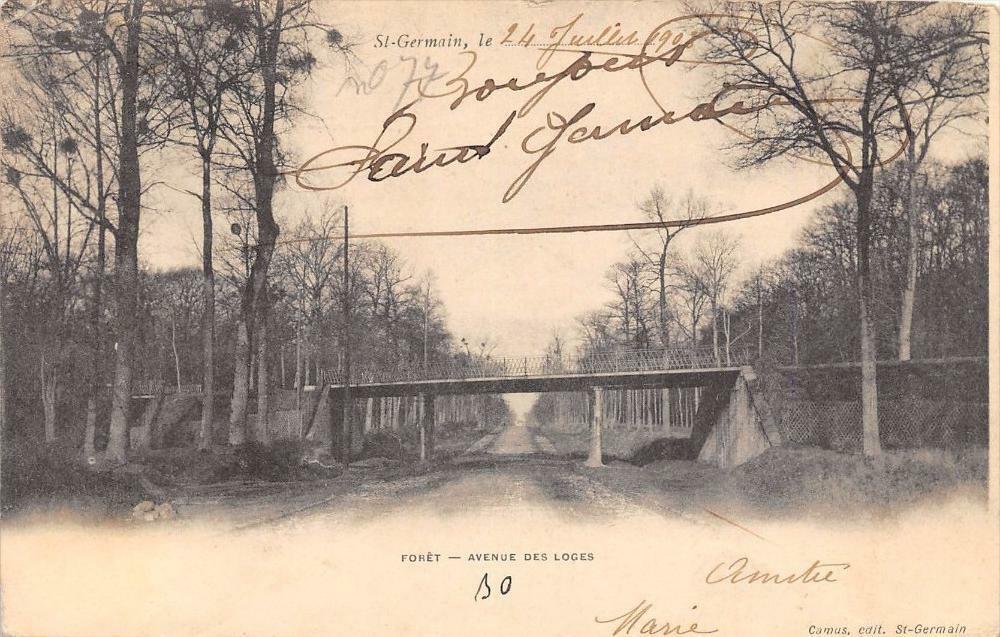 St-Germain, le 24 Juillet 190
no 77
Saint Germain
FORÊT — AVENUE DES LOGES
30
Amitié
Marie
Camus, edit. St-Germain